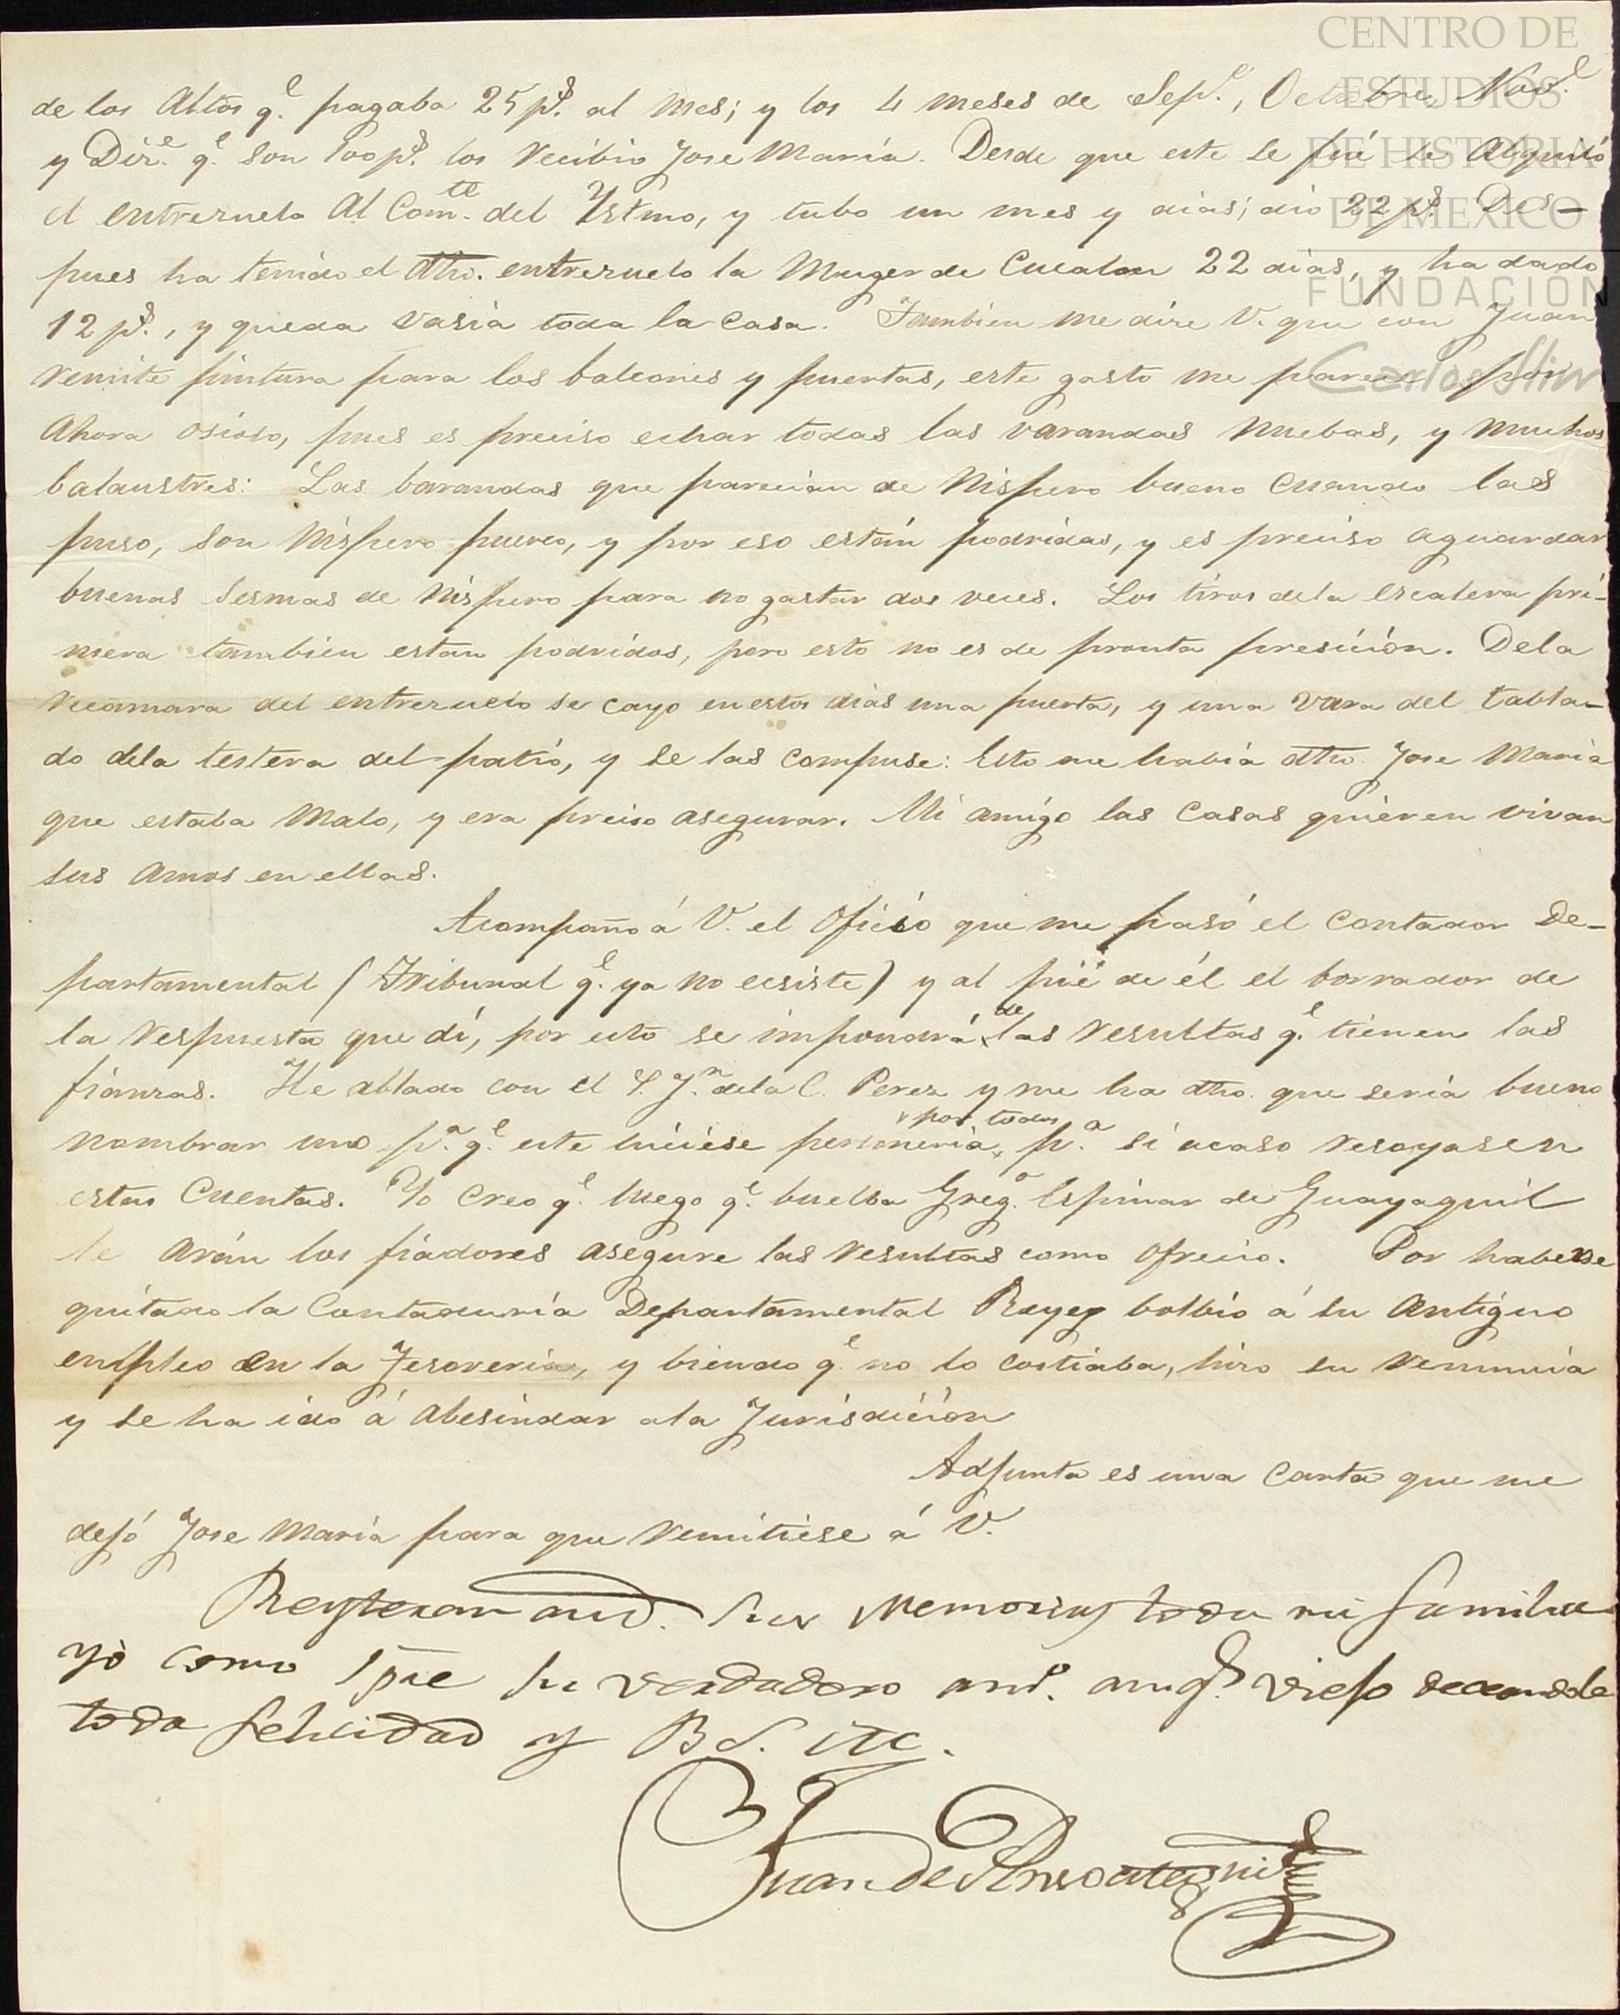 CENTRO DE
ESTUDIOS
DE HISTORIA
DE MEXICO
FUNDACIÓN
Carlos Slim
de los Altos q.e pagaba 25 p.s al mes; y los 4 meses de Sep.e, Octubre Nov.e
y Diz.e q.e son 100 p.s los recibio Jose Maria. Desde que este se fué se alquiló
el entrezuelo al Com.te del Ystmo, y tubo un mes y dias; dio 22 p.s Des-
pues ha tenido el dho. entrezuelo la Muger de Cucalon 22 dias, y ha dado
12 p.s, y queda vasia toda la casa. Tambien me dize V. que con Juan
remite pintura para los balcones y puertas, este gasto me parece por
ahora osioso, pues es preciso echar todas las varandas nuebas, y muchos
balaustres: Las barandas que parecian de Nispero bueno cuando las
puso, son Nispero puerco, y por eso están podridas, y es preciso aguardar
buenas sesmas de Nispero para no gastar dos veces. Los tiros dela escalera pri-
mera tambien estan podridos, pero esto no es de pronta presición. Dela
recamara del entrezuelo se cayo en estos dias una puerta, y una vara del tabla-
do dela testera del patio, y se las compuse: Esto me habia dho. Jose Maria
que estaba malo, y era preciso asegurar. Mi amigo las casas quieren vivan
sus amos en ellas.
Acompaño á V. el oficio que me pasó el contador De-
partamental (Tribunal q.e ya no ecsiste) y al pié de él el borrador de
la respuesta que dí, por esto se impondrá de las resultas q.e tienen las
fianzas. He ablado con el S. J.n dela C. Perez y me ha dho. que seria bueno
nombrar uno p.a q.e este hiciese personeria por todos p.a si acaso resayasen
estas cuentas. Yo creo q.e luego q.e buelba Greg.o Espinar de Guayaquil
le arán los fiadores asegure las resultas como ofrecio. Por haberse
quitado la Contaduría Departamental Reyes bolbio á su antiguo
empleo en la Tesoreria, y biendo q.e no lo costiaba, hizo su renuncia
y se ha ido á abesindar ala Jurisdicion
Adjunta es una carta que me
dejó Jose Maria para que remitiese á V.
Reyteran aud. sus memorias toda mi familia
yò como spre su verdadero ant.o amig.o viejo deceandole
toda felicidad y B S. M.
Juan de